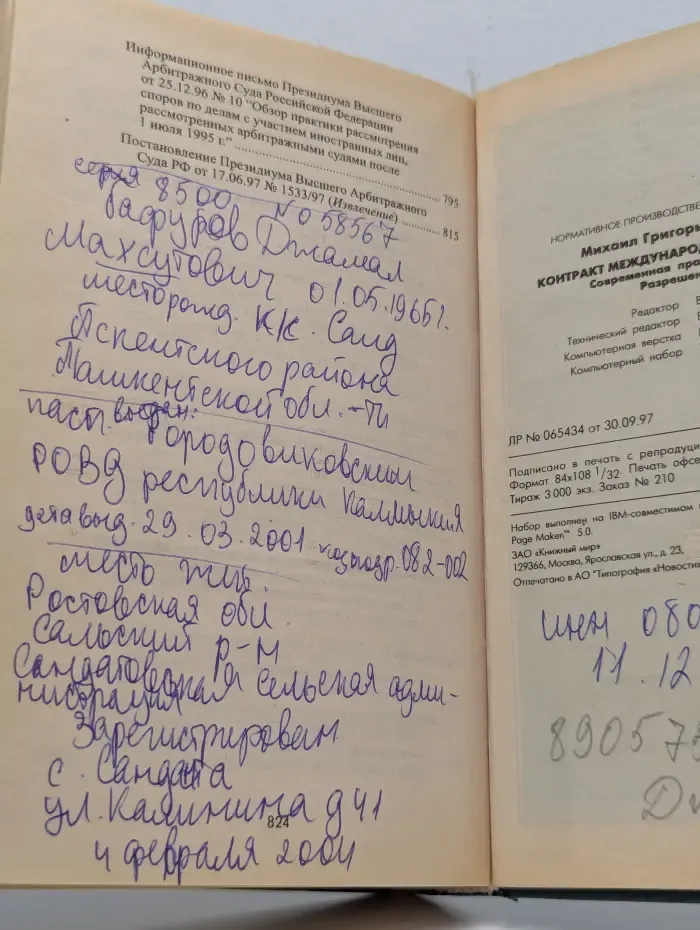 Информационное письмо Президиума Высшего
Арбитражного Суда Российской Федерации
от 25.12.96 № 10 "Обзор практики рассмотрения
споров по делам с участием иностранных лиц,
рассмотренных арбитражными судами после
1 июля 1995 г." 795
Постановление Президиума Высшего Арбитражного
Суда РФ от 17.06.97 № 1533/97 (Извлечение) 815
серия 8500 № 058567
Гафуров Джамал
Махсутович 01.05.1965г.
место рожд. К/к. Саид
Пскентского района
Ташкентской обл.
пасп. выдан: Городовиковским
РОВД республики Калмыкия
дата выд. 29.03.2001 код подр. 082-002
место жит.
Ростовская обл.
Сальский р-н
Сандатовская сельская адми-
нистрация
Зарегистрирован
с. Сандата
ул. Калинина д 41
4 февраля 2004
824
НОРМАТИВНОЕ ПРОИЗВОДСТВЕ
Михаил Григорь
КОНТРАКТ МЕЖДУНАРОД
Современная пра
Разрешен
Редактор
Технический редактор
Компьютерная верстка
Компьютерный набор
ЛР № 065434 от 30.09.97
Подписано в печать с репродуци
Формат 84х108 1/32. Печать офсе
Тираж 3 000 экз. Заказ № 210
Набор выполнен на IBM-совместимом
Page Maker™ 5.0.
ЗАО «Книжный мир»
129366, Москва, Ярославская ул., д. 23,
Отпечатано в АО "Типография «Новости»
ИНН 080
11.12
890578
Дж